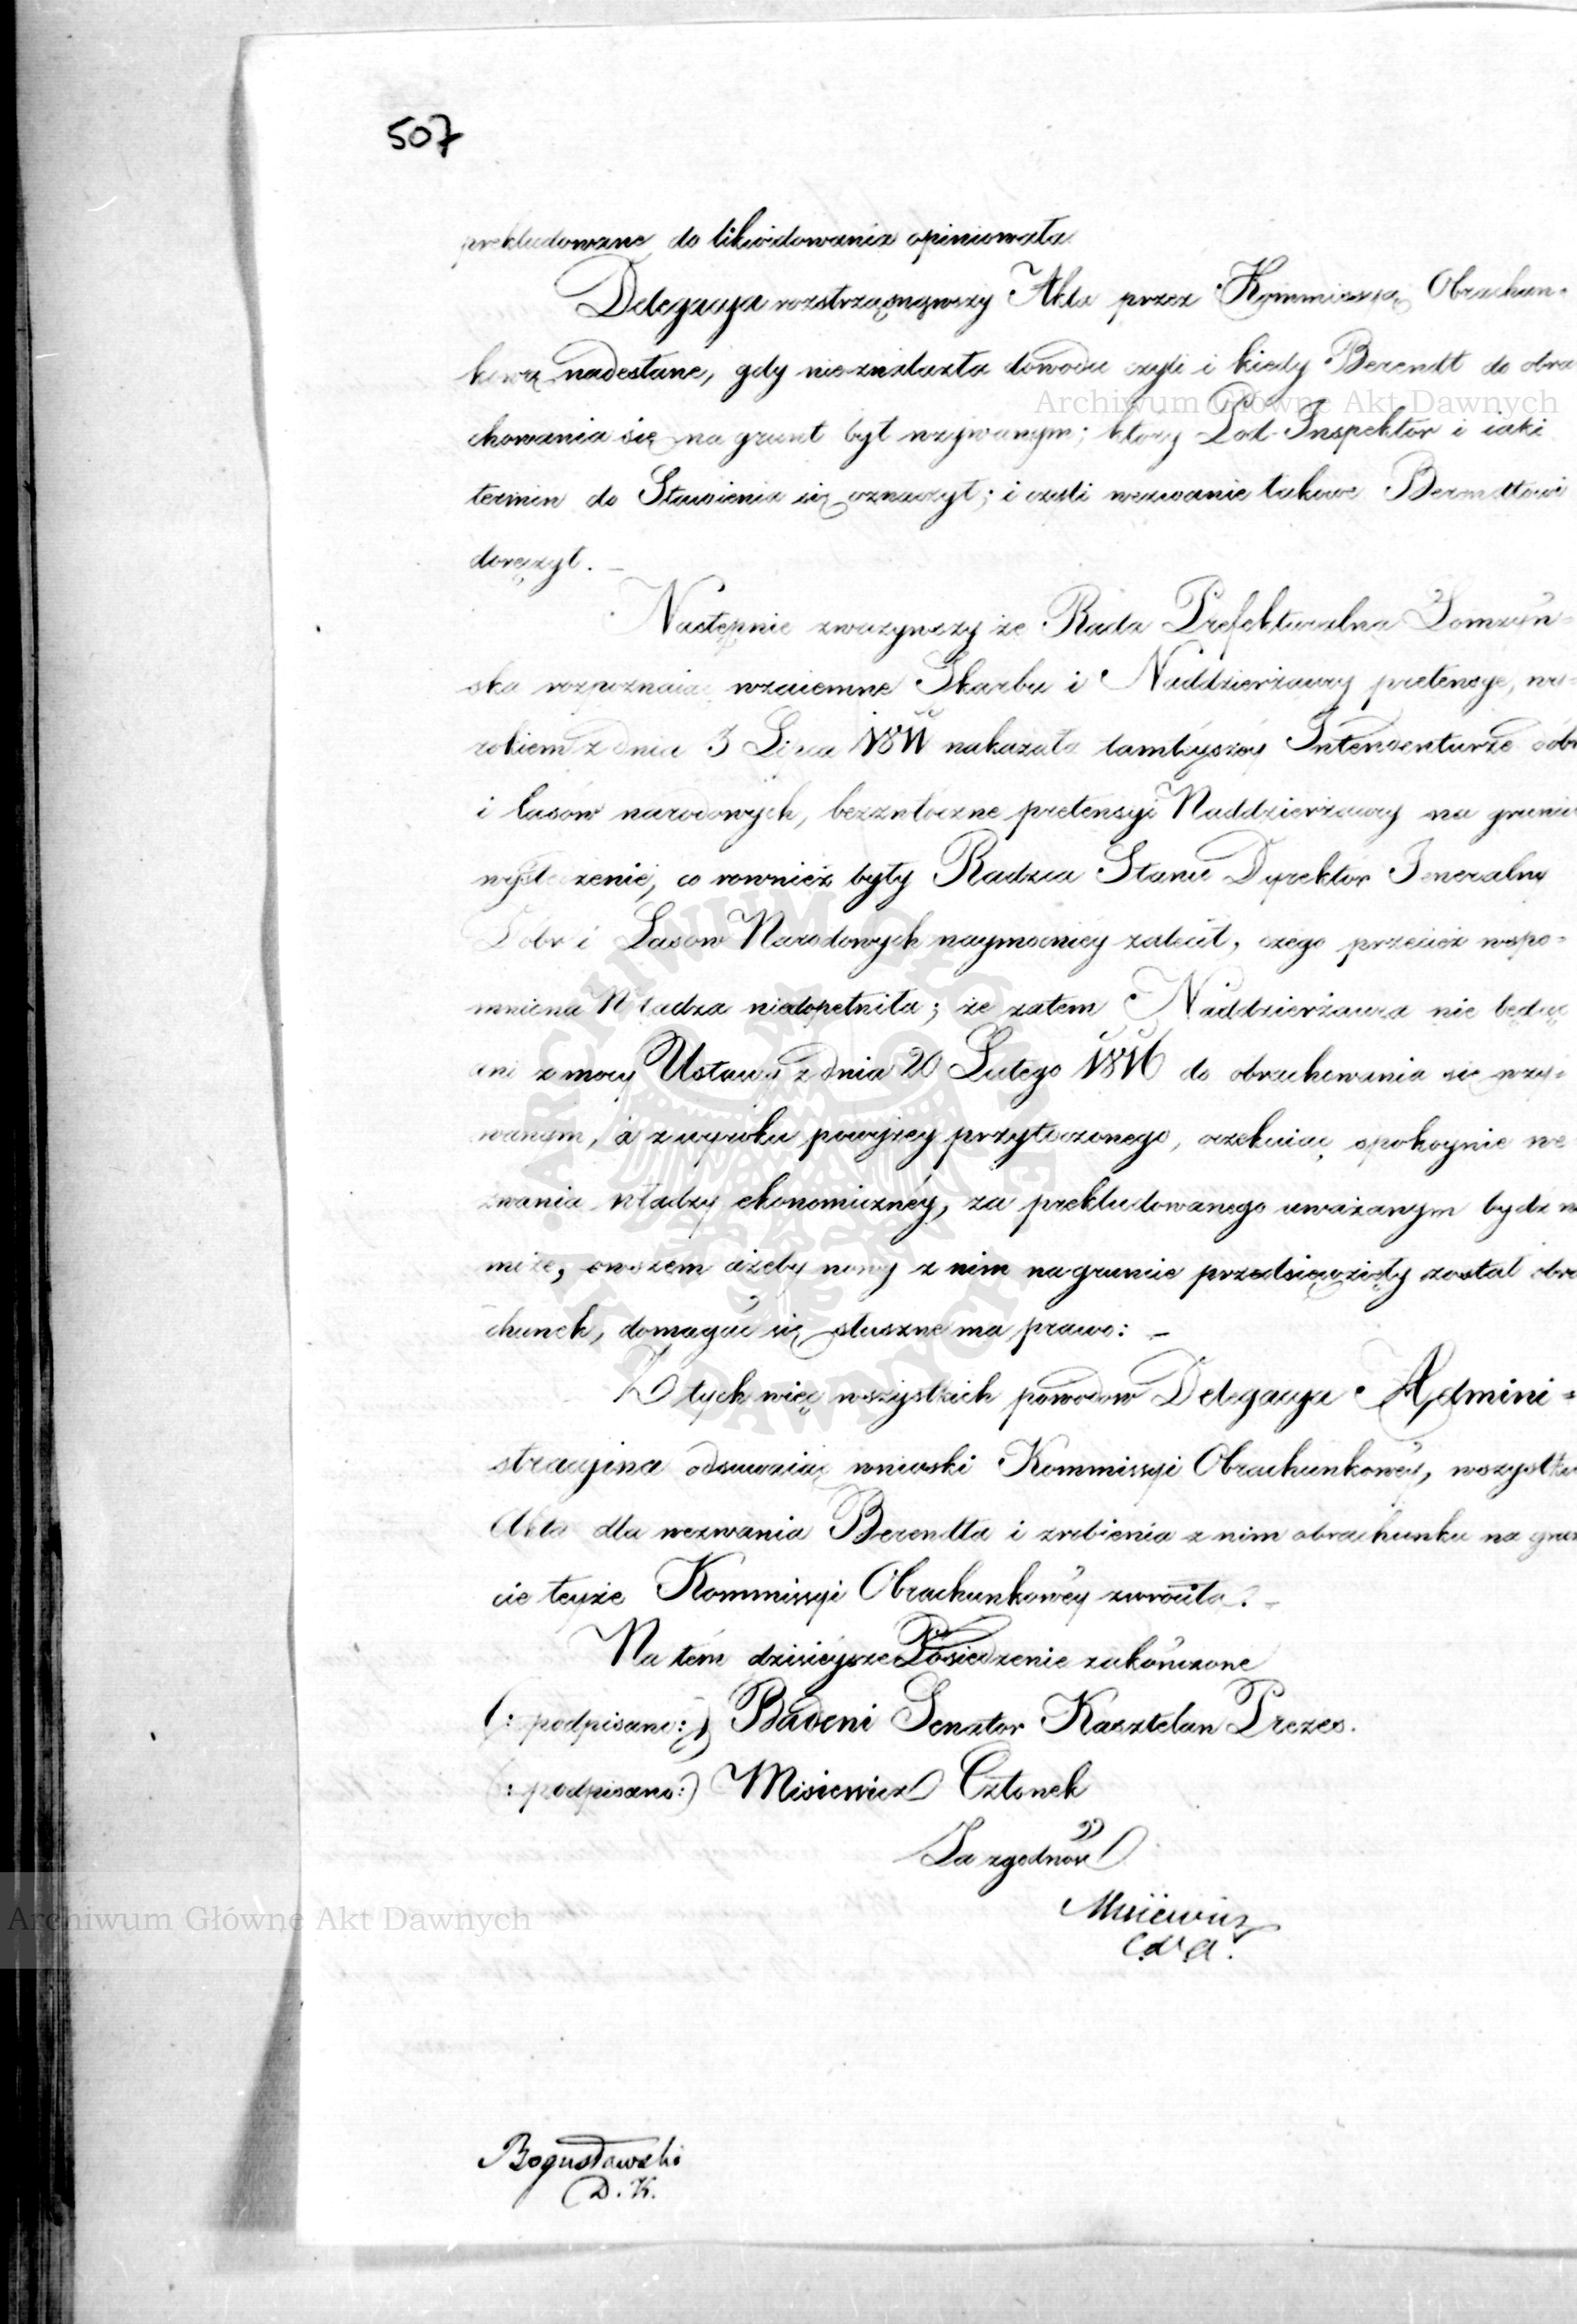 507
prekludowane do likwidowania opiniowała
Delegacya roztrząsnąwszy Akta przez Kommissyą Obrachun=
kową nadesłane, gdy nieznalazła dowodu czyli i kiedy Berendt do obra
Archiwum Główne Akt Dawnych
chowania się na grunt był wzywanym; ktory Pod-Inspektor i iaki
termin do Stawienia się oznaczył; i czyli wezwanie takowe Berendtowi
doręczył. –
Następnie zwazywszy że Rada Prefekturalna Łomżyń=
ska rozpoznaiąc wzaiemne Skarbu i Naddzierżawcy pretensye, wy=
rokiem z dnia 3 Lipca 1811 nakazała tamteyszéy Intendenturze dóbr
i lasów narodowych, bezzwłoczne pretensyi Naddzierżawcy na gruncie
wyśledzenie, co rownież były Radzca Stanu Dyrektór Jeneralny
Dobr i Lasow Narodowych naymocniéy zalecił, czego przecież wspo=
mniona Władza niedopełniła; że zatem Naddzierżawca nie będąc
ani z mocy Ustawy z dnia 20 Lutego 1816 do obrachowania się wzy=
wanym, a z wyroku powyżey przytoczonego, oczekuiąc spokoynie we
zwania władzy ekonomicznéy, za prekludowanego uważanym bydź n
może, owszem ażeby nowy z nim na gruncie przedsięwzięty został obra
chunek, domagać się słuszne ma prawo: –
Z tych więc wszystkich powodow Delegacya Admini=
stracyina odsuwaiąc wnioski Kommissyi Obrachunkowéy, wszystkie
Akta dla wezwania Berendta i zrobienia z nim obrachunku na grun
cie teyże Kommissyi Obrachunkowéy zwrociła. –
Na tém dzisiéysze Posiedzenie zakończone
(: podpisano:) Badeni Senator Kasztelan Prezes.
(: podpisano:) Misiewicz Członek
Za zgodność
Misiewicz
Archiwum Główne Akt Dawnych
Bogusławski
D. K.